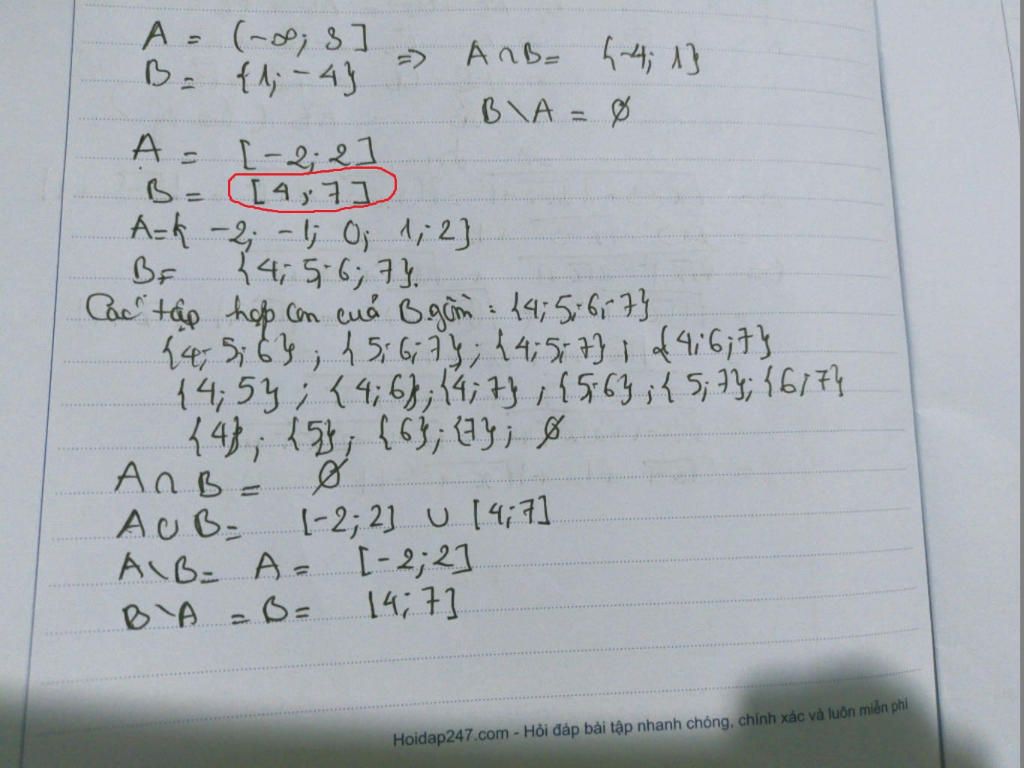 A = (-∞; 3]
B = {1; -4} => A∩B = {-4; 1}
B\A = ∅
A = [-2; 2]
B = [4; 7]
A={ -2; -1; 0; 1; 2]
B= {4; 5; 6; 7}.
Các tập hợp con của B gồm: {4; 5; 6; 7}
{4; 5; 6} ; {5; 6; 7} ; {4; 5; 7} ; {4; 6; 7}
{4; 5} ; {4; 6} ; {4; 7} ; {5; 6} ; {5; 7}; {6; 7}
{4} ; {5}; {6}; {7}; ∅
A∩B = ∅
A∪B= [-2; 2] ∪ [4; 7]
A\B = A = [-2; 2]
B\A = B = [4; 7]
Hoidap247.com - Hỏi đáp bài tập nhanh chóng, chính xác và luôn miễn phí